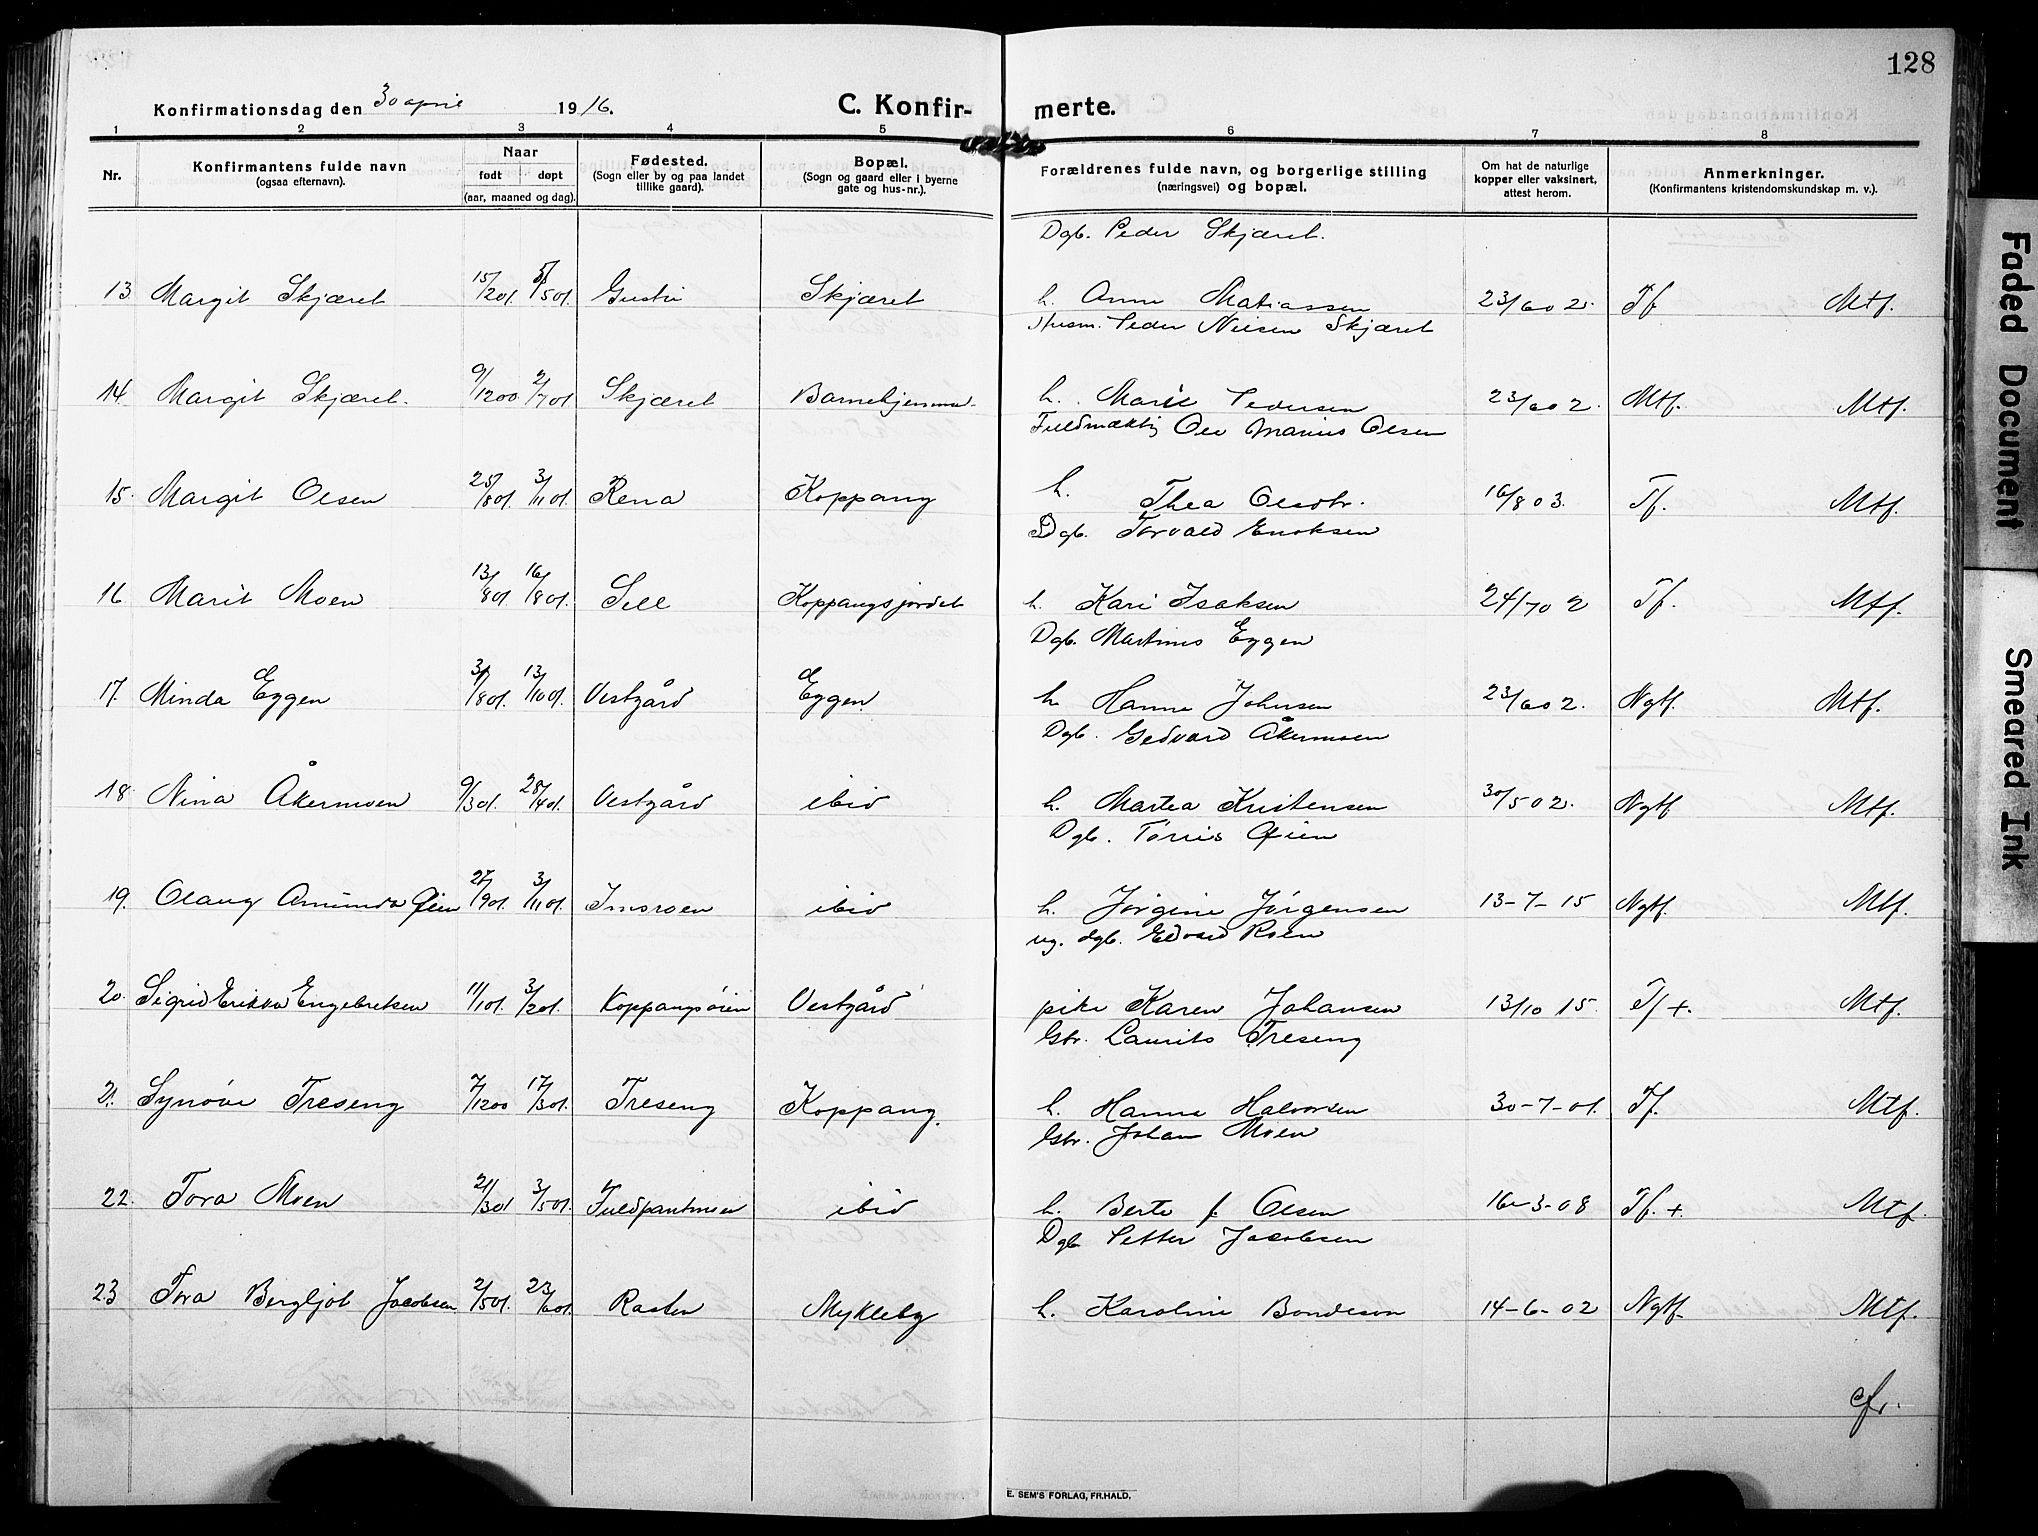 128
Konfirmationsdag den 30 april 1916.
C. Konfirmerte.
1 2 3 4 5 6 7 8
Nr.
Konfirmantens fulde navn
(ogsaa efternavn).
Naar
født døpt
(aar, maaned og dag).
Fødested.
(Sogn eller by og paa landet
tillike gaard).
Bopæl.
(Sogn og gaard eller i byerne
gate og hus-nr.).
Forældrenes fulde navn, og borgerlige stilling
(næringsvei) og bopæl.
Om hat de naturlige
kopper eller vaksinert,
attest herom.
Anmerkninger.
(Konfirmantens kristendomskundskap m. v.).
Dgb. Peder Skjæret.
13 Margit Skjæret 15/2 01. 5/5 01. Skjæret h. Anne Matiassen 23/6 02. Tf. Mtf.
Peder Nilsen Skjæret
14. Margit Skjæret. 9/12 00. 2/7 01. Skjæret Barnehjemme. h. Marie Pedersen 23/6 02. Mtf. Mtf.
Fuldmæktig Ole Marius Olsen
15. Margit Olsen 25/8 01. 3/11 01. Rena Koppang h. Thea Olsdtr. 16/8 03. Tf. Mtf.
Dgb. Torvald Enoksen
16 Marit Moen 13/8 01. 16/8 01. Sell Koppangsjordet h. Kari Isaksen 24/7 02 Tf. Mtf.
Dgb. Martinus Eggen
17. Minda Eggen 31/8 01. 13/10 01. Vestgård Eggen h. Hanna Johnsen 23/6 02. Ngtf. Mtf.
Dgb. Gedvard Åkermoen
18. Nina Åkermoen 9/3 01. 28/4 01. Vestgård ibid h. Martea Kristensen 30/5 02. Ngtf Mtf.
Dgb. Tørris Øien
19. Olaug Amunda Øien 27/9 01. 3/11 01. Imsroen ibid h. Jørgine Jørgensen 13-7-15 Ngtf. Mtf.
ug. dgb. Edvard Roen
20. Sigrid Erikka Engebretsen 11/1 01. 3/2 01. Koppangsøien Vestgård pike Karen Johansen 13/10 15. Tf +. Mtf.
Gbr. Laurits Treseng
21. Synøve Treseng 7/12 00 17/3 01. Treseng Koppang. h. Hanna Halvorsen 30-7-01. Tf. Mtf.
Gbr. Johan Moen
22. Tora Moen 21/3 01 3/5 01. ibid h. Berte f. Olsen 16-3-08 Tf. +. Mtf.
Dgb Petter Jacobsen
23 Tora Bergljot Jacobsen 2/5 01. 23/6 01. Rasten Mykleby h. Karoline Bondeson 14-6-02 Ngtf. Mtf.
cfr.
E. SEM'S FORLAG, FR.HALD.
Faded Document
Smeared Ink